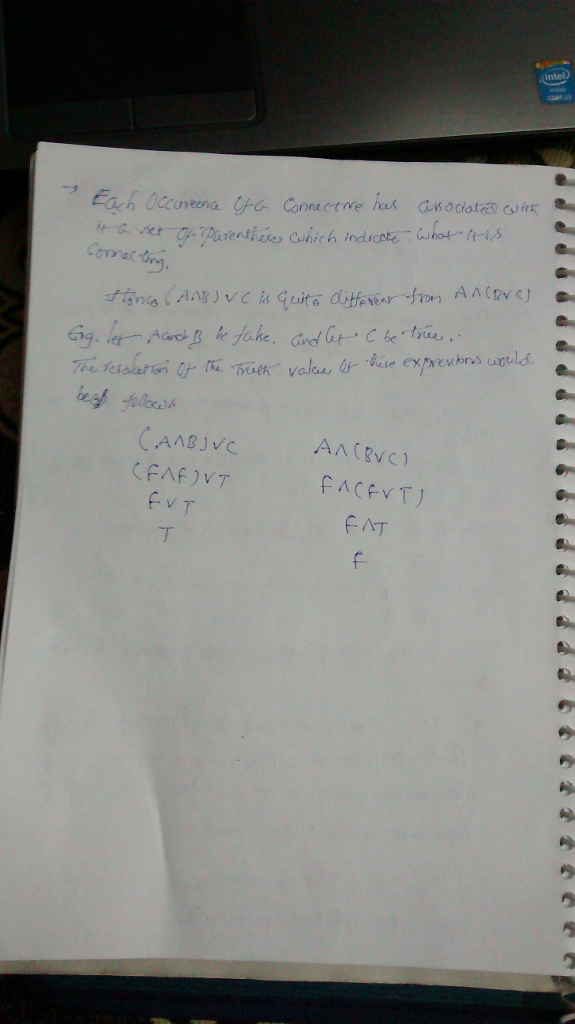 intel
inside
CORE i3
→ Each Occurrence Of a Connective has associated with
it a set Of Parentheses which indicate what it is
Connecting.
Hence (A∧B)∨C is Quite different from A∧(B∨C)
Eng. let A and B be false. and let C be true.
The resolution Of the Truth value Of these expressions would
be as follows
(A∧B)∨C A∧(B∨C)
(F∧F)∨T F∧(F∨T)
F∨T F∧T
T F